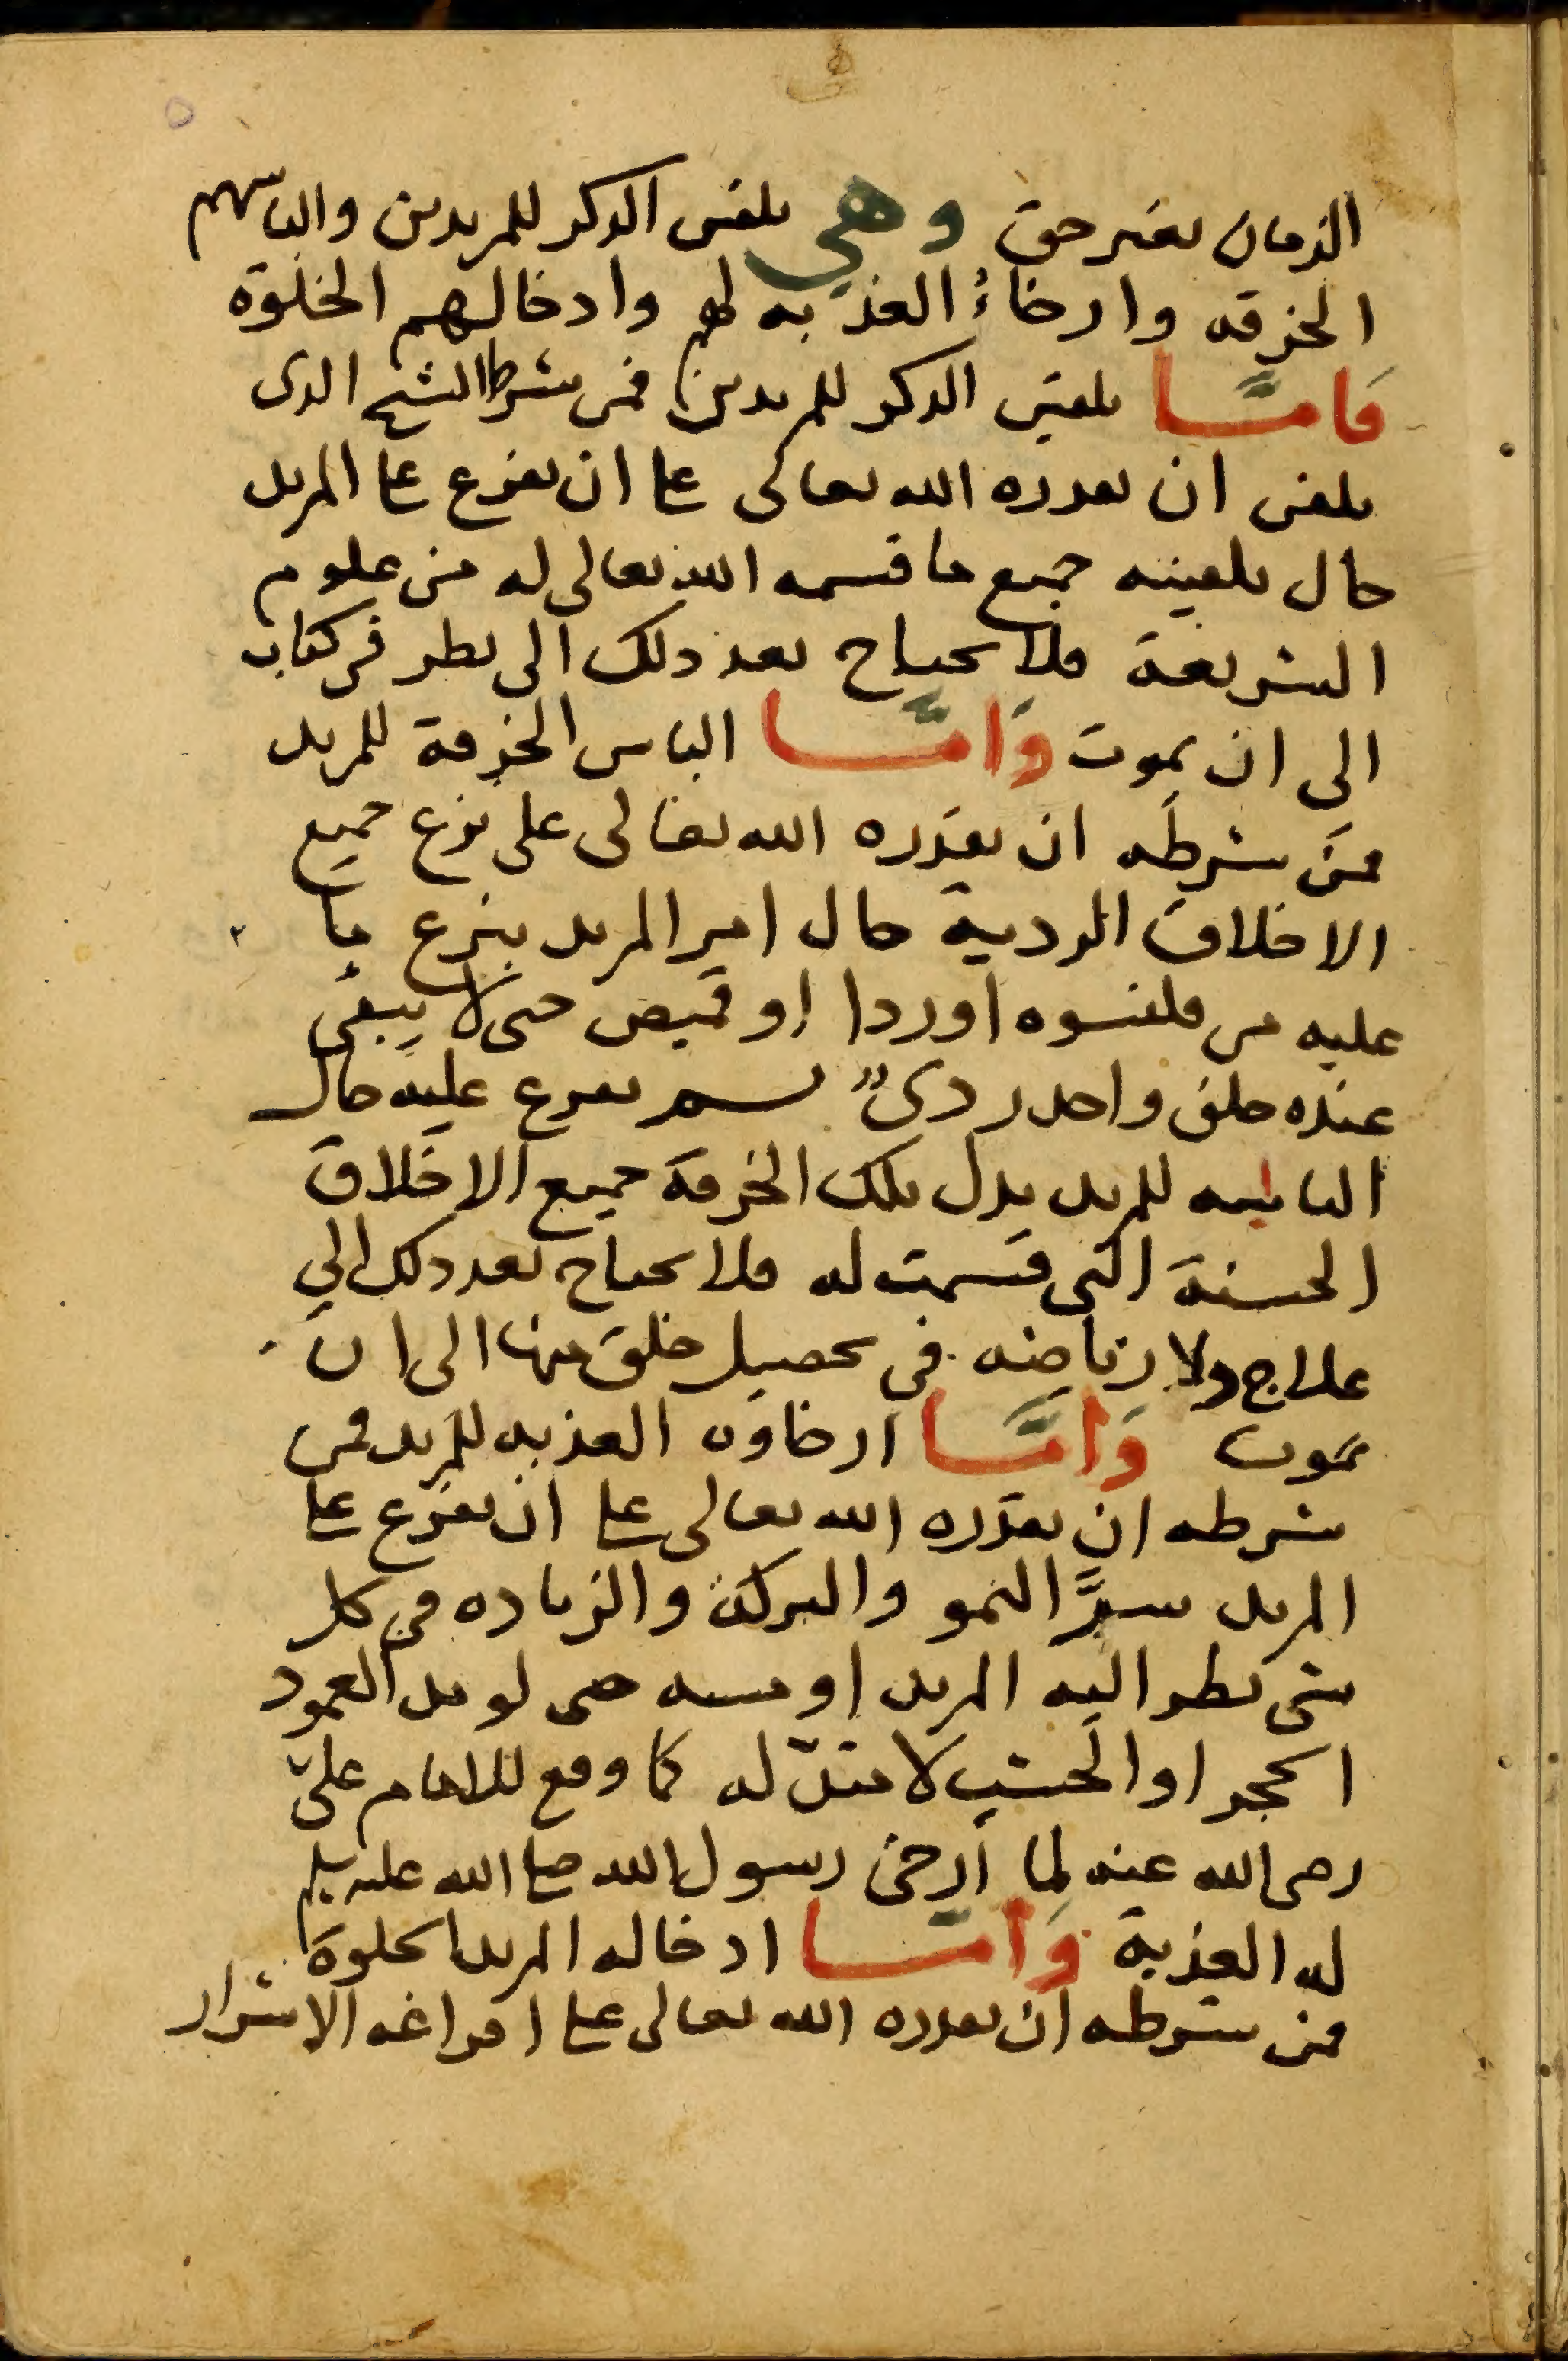 الزمان بغير حق وهي تلقين الذكر للمريدين والباسهم
الخرقه وارخاءُ العذبه لهم وادخالهم الخلوة
فَامَّا تلقين الذكر للمريدين فمن شرط الشيخ الذى
يلقن ان يقدره الله تعالى على ان يفرغ على المريد
حال تلقينه جميع ما قسمه الله تعالى له من علوم
الشريعة فلا يحتاج بعد ذلك الى نظر في كتاب
الى ان يموت وَامَّا الباس الخرقة للمريد
فمن شرطه ان يقدره الله تعالى على نزع جميع
الاخلاق الردية حال امر المريد بنزع ما
عليه من قلنسوه اوردا او قميص حتى لا يبقى
عنده خلق واحد ردىٌ ثم يفرغ عليه حال
الباسه للمريد بدل تلك الخرقة جميع الاخلاق
الحسنة التى قسمت له فلا يحتاج بعد ذلك الى
علاج ولا رياضه في تحصيل خلق منها الى ان
يموت وَامَّا ارخاوه العذبه للمريد فمن
شرطه ان يقدره الله تعالى على ان يفرغ على
المريد سرَّ النمو والبركة والزياده في كل
شى نظر اليه المريد او مسه حتى لو مد العمود
الحجر او الخشب لامتدّ له كما وقع للامام علىّ
رضى الله عنه لما أرخى رسول الله صلى الله عليه وسلم
له العذبة وَامَّا ادخاله المريد الخلوة
فمن شرطه ان يقدره الله تعالى على افراغه الاسرار